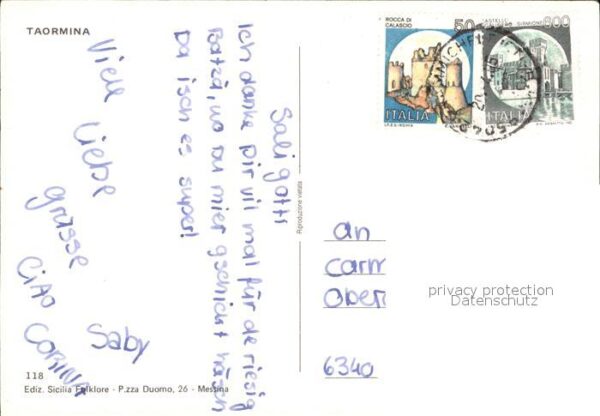 TAORMINA
Sali gotti
Ich danke dir vil mal für de riesig
Batzä, wo du mier gschickt häsch
Da isch es super!
Viele
Liebe
grüsse
Ciao
CORINA
Saby
118
Ediz. Sicilia Folklore - P.zza Duomo, 26 - Messina
Riproduzione vietata
ROCCA DI
CALASCIO
50
ITALIA
I.P.Z.S. - ROMA
CASTELLO
SIRMIONE 800
ITALIA
an
carm
ober
6340
privacy protection
Datenschutz